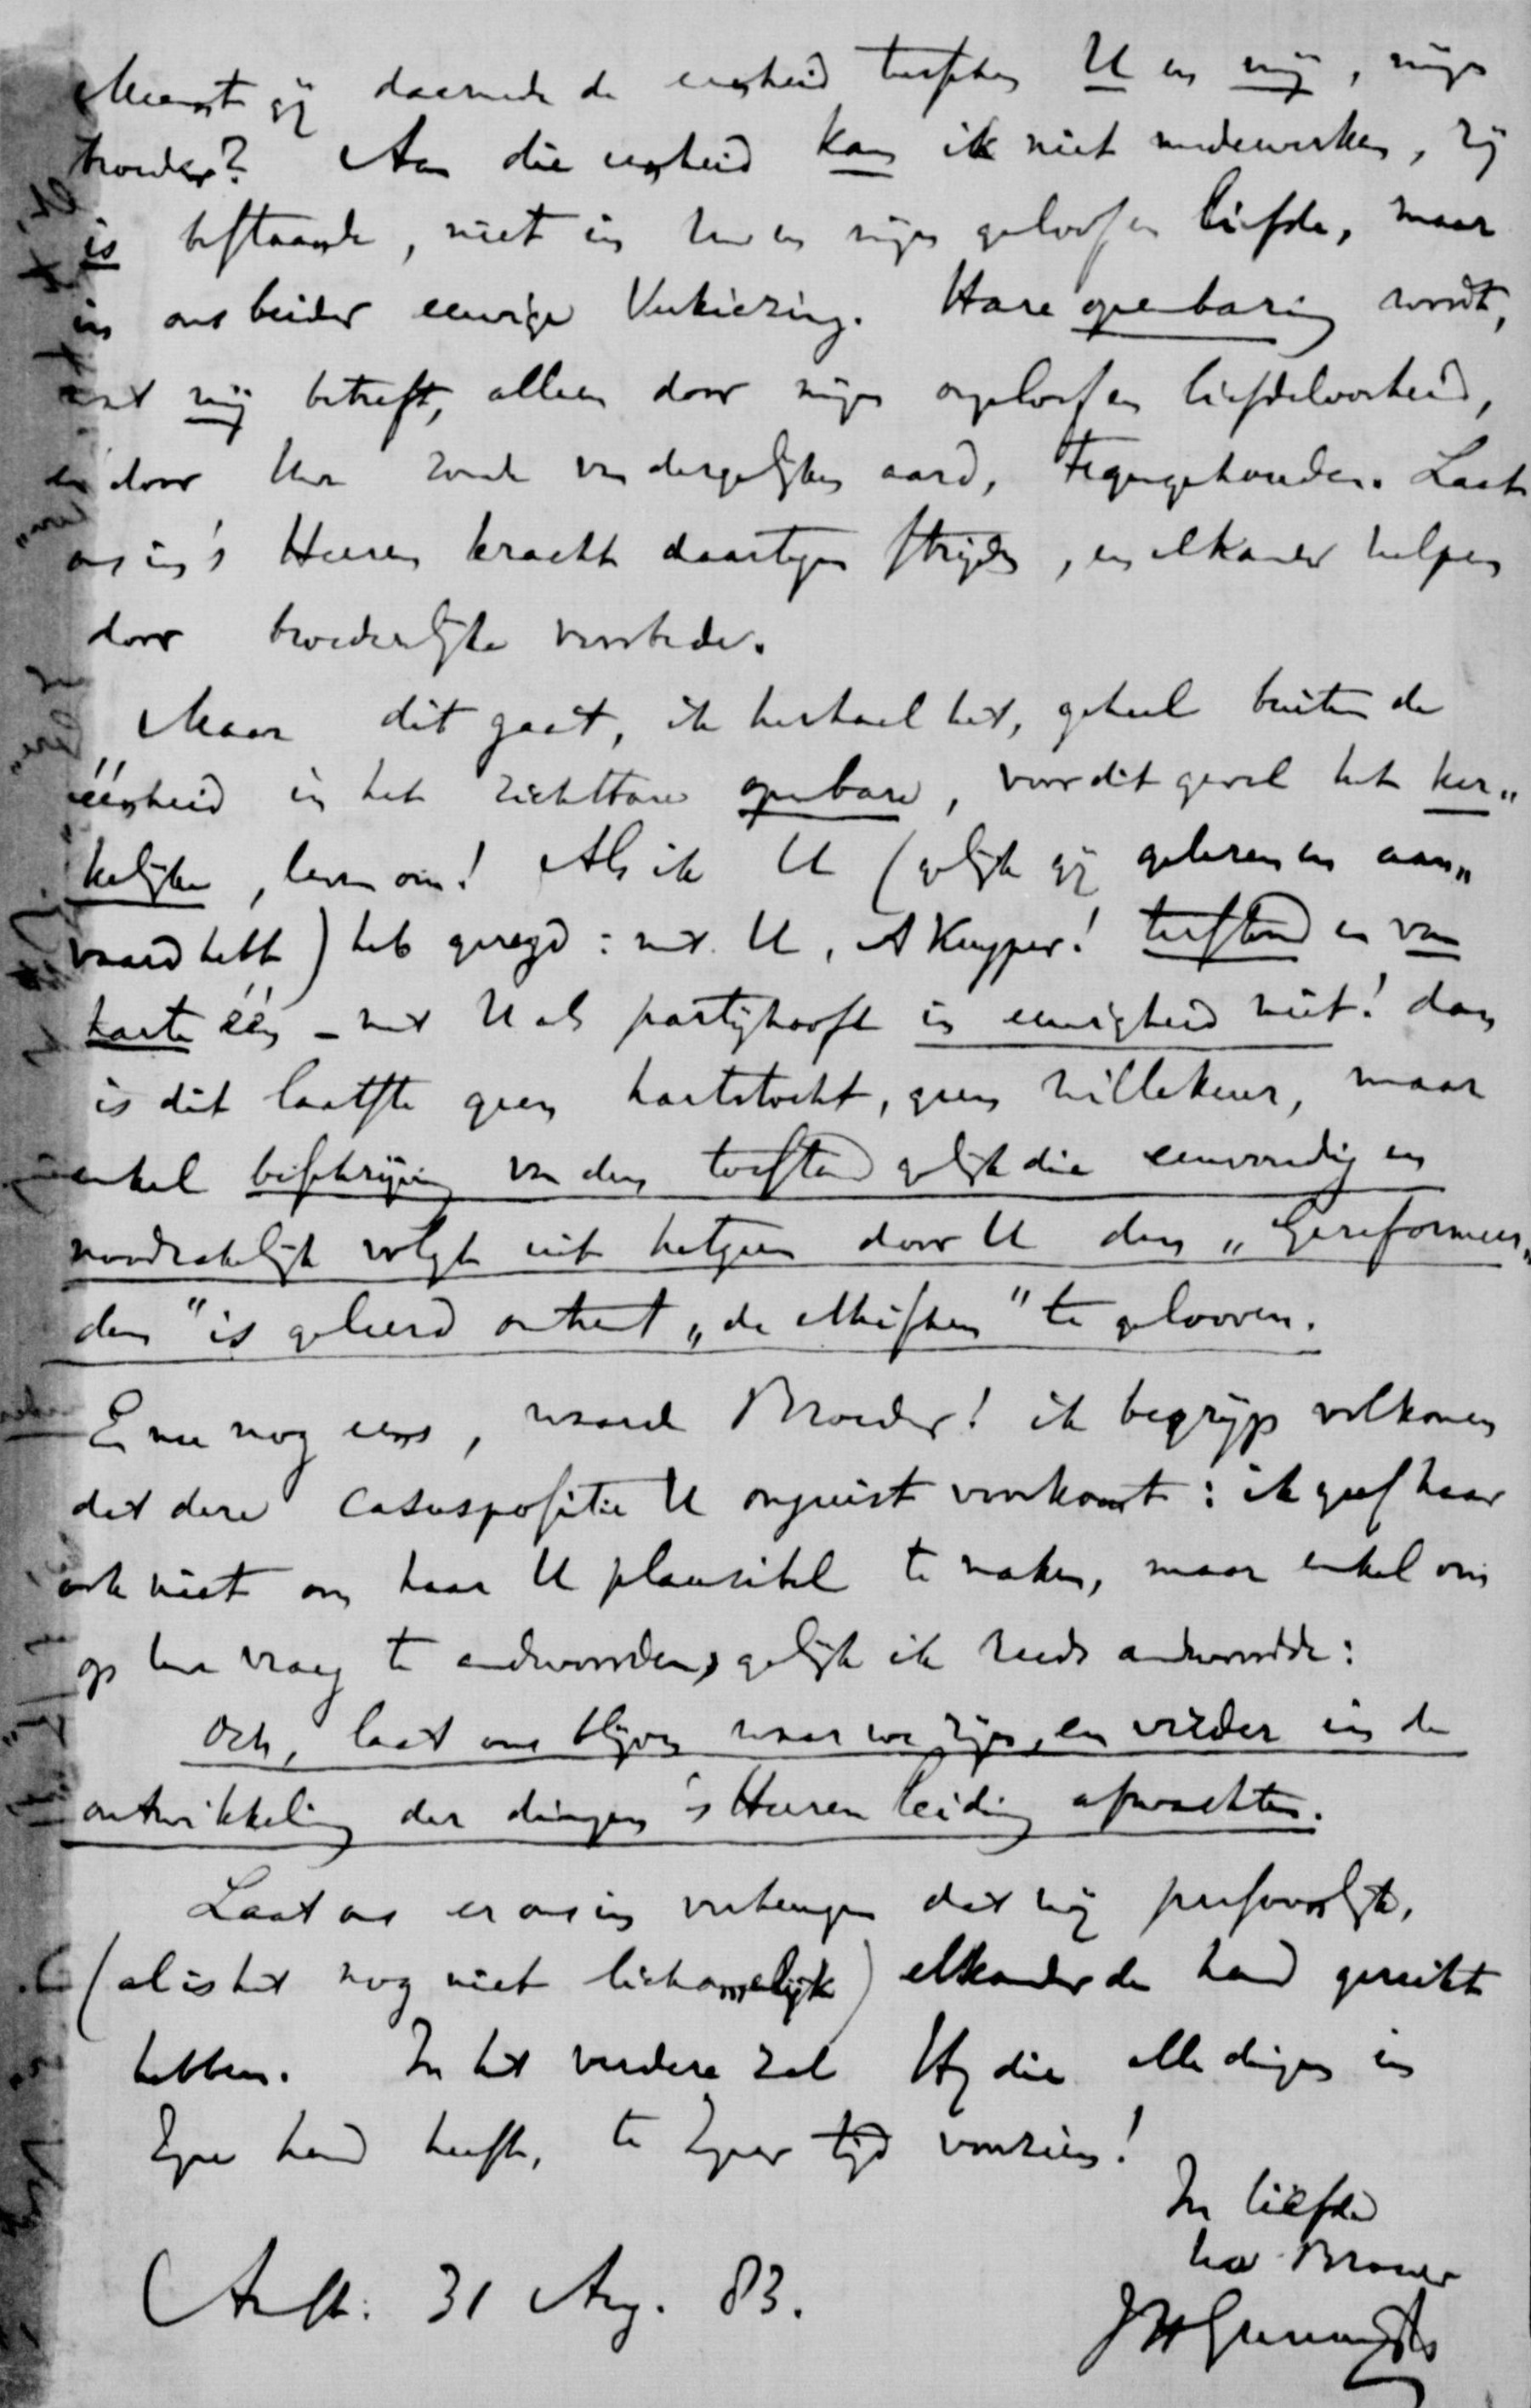 Meent gij daarmede de eenheid tusschen U en mij, mijn
broeder? Aan die eenheid kan ik niet medewerken, zij
is bestaande, niet in Uw en mijn geloof en liefde, maar
in ons beider eeuwige Verkiezing. Hare openbaring wordt,
wat mij betreft, alleen door mijn ongeloof en liefdeloosheid,
en door Uw zonde van dergelijken aard, tegengehouden. Laat
ons in 's Heeren kracht daartegen strijden, en elkander helpen
door broederlijke voorbede.
Maar dit gaat, ik herhaal het, geheel buiten de
éénheid in het zichtbare openbare, voor dit geval het ker„
kelijke, leven om! Als ik U (gelijk gij gelezen en aan„
vaard hebt) heb gezegd: met U, A Kuyper! bestand en van
harte één – met U als partijhoofd in eeuwigheid niet! dan
is dit laatste geen hartstocht, geen willekeur, maar
enkel beschrijving van den toestand gelijk die eenvoudig en
noodzakelijk volgt uit hetgeen door U den „Gereformeer„
den" is geleerd omtrent „de ethischen" te gelooven.
En nu nog eens, waarde Broeder! ik begrijp volkomen
dat deze casuspositie U onjuist voorkomt: ik geef haar
ook niet om haar U plausibel te maken, maar enkel om
op Uw vraag te andwoorden, gelijk ik reeds andwoordde:
Och, laat ons blijven waar we zijn, en verder in de
ontwikkeling der dingen 's Heeren leiding afwachten.
Laat ons er ons in verheugen dat wij persoonlijk,
(al is het nog niet lichamelijk) elkander de hand gereikt
hebben. In het verdere zal Hij die alle dingen in
Zijne hand heeft, te Zijner tijd voorzien!
In liefde
Uw Broeder
Amst: 31 Aug. 83.
JHGunning Jr